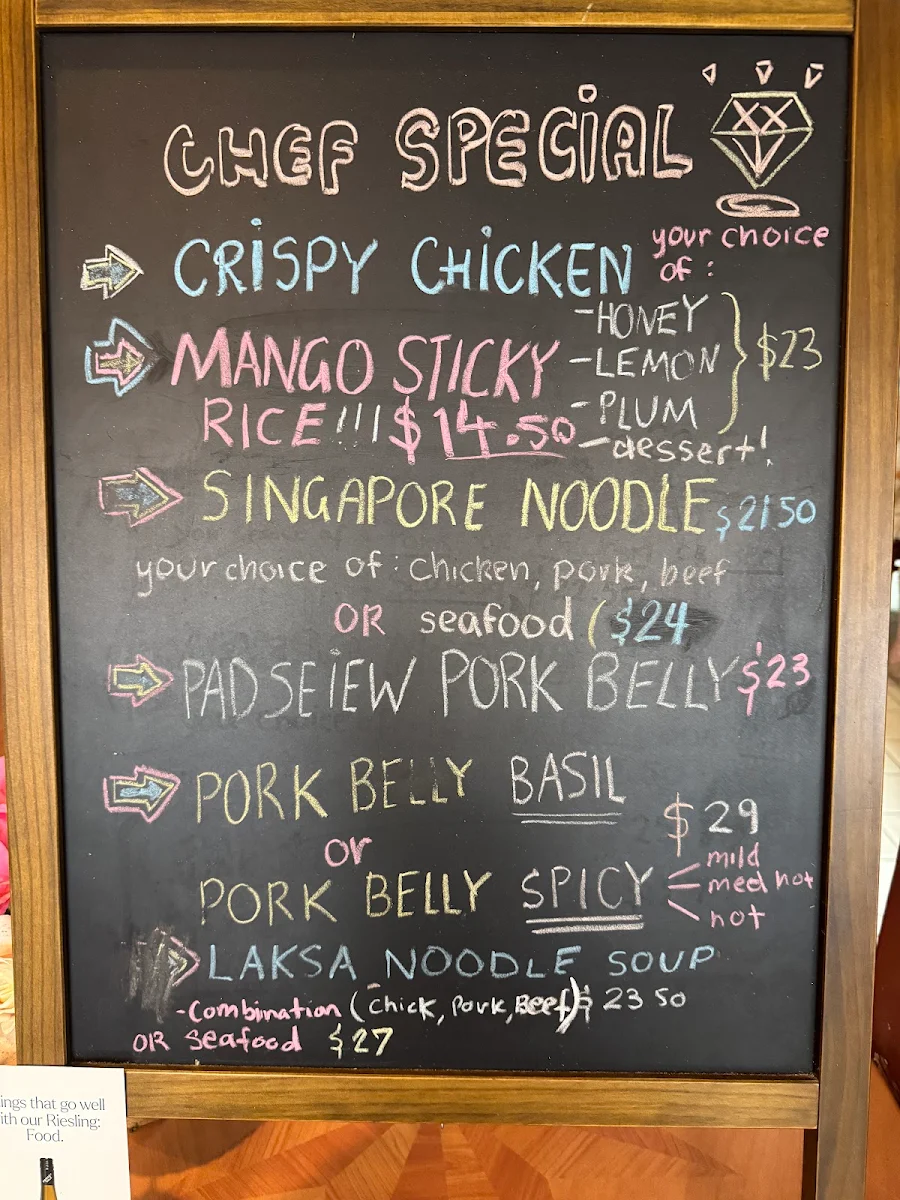 CHEF SPECIAL
CRISPY CHICKEN your choice of :
-HONEY
-LEMON
-PLUM
$23
MANGO STICKY
RICE!!! $14.50 -dessert!
SINGAPORE NOODLE $21.50
your choice of: chicken, pork, beef
OR seafood ($24
PADSEIEW PORK BELLY $23
PORK BELLY BASIL
or
$29
PORK BELLY SPICY
mild
med hot
hot
LAKSA NOODLE SOUP
-Combination (Chick, Pork, Beef) $ 23 50
OR Seafood $27
ings that go well
ith our Riesling:
Food.